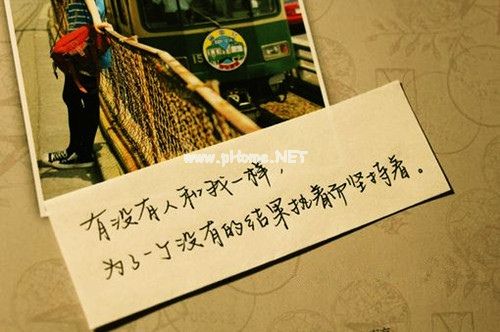 15
www.pHome.NET
有没有人和我一样，
为了一个没有的结果执着而坚持着。